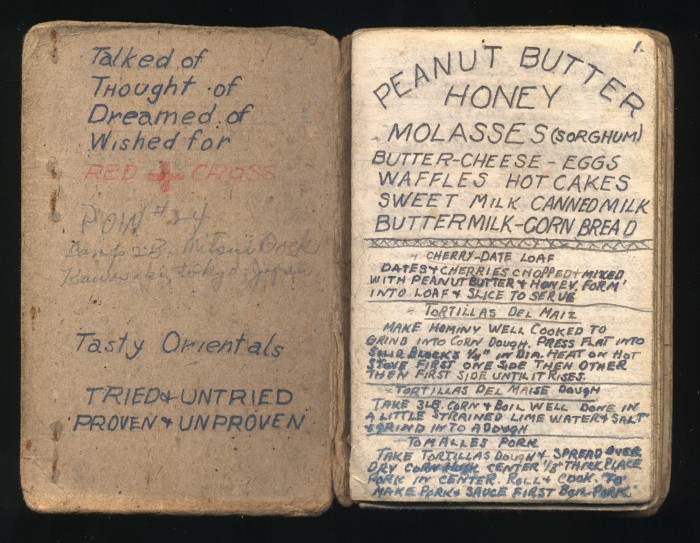 Talked of
Thought of
Dreamed of
Wished for
RED + CROSS
POW #24
Camp 2B, Mitsui Dock
Kawasaki, Tokyo, Japan
Tasty Orientals
TRIED & UNTRIED
PROVEN & UNPROVEN
1.
PEANUT BUTTER
HONEY
MOLASSES (SORGHUM)
BUTTER-CHEESE-EGGS
WAFFLES HOT CAKES
SWEET MILK CANNED MILK
BUTTERMILK-CORN BREAD
CHERRY-DATE LOAF
DATES & CHERRIES CHOPPED & MIXED
WITH PEANUT BUTTER & HONEY. FORM
INTO LOAF & SLICE TO SERVE
TORTILLAS DEL MAIZ
MAKE HOMINY WELL COOKED TO
GRIND INTO CORN DOUGH. PRESS FLAT INTO
SOLID BLOCKS 1/4" IN DIA. HEAT ON HOT
STOVE FIRST ONE SIDE THEN OTHER
THEN FIRST SIDE UNTIL IT RISES.
TORTILLAS DEL MAISE DOUGH
TAKE 3LB. CORN & BOIL WELL DONE IN
A LITTLE STRAINED LIME WATER & SALT
& GRIND INTO A DOUGH
TOMALLES PORK
TAKE TORTILLAS DOUGH & SPREAD OVER
DRY CORN HUSK CENTER 1/8" THICK PLACE
PORK IN CENTER. ROLL & COOK. TO
MAKE PORK & SAUCE FIRST BOIL PORK